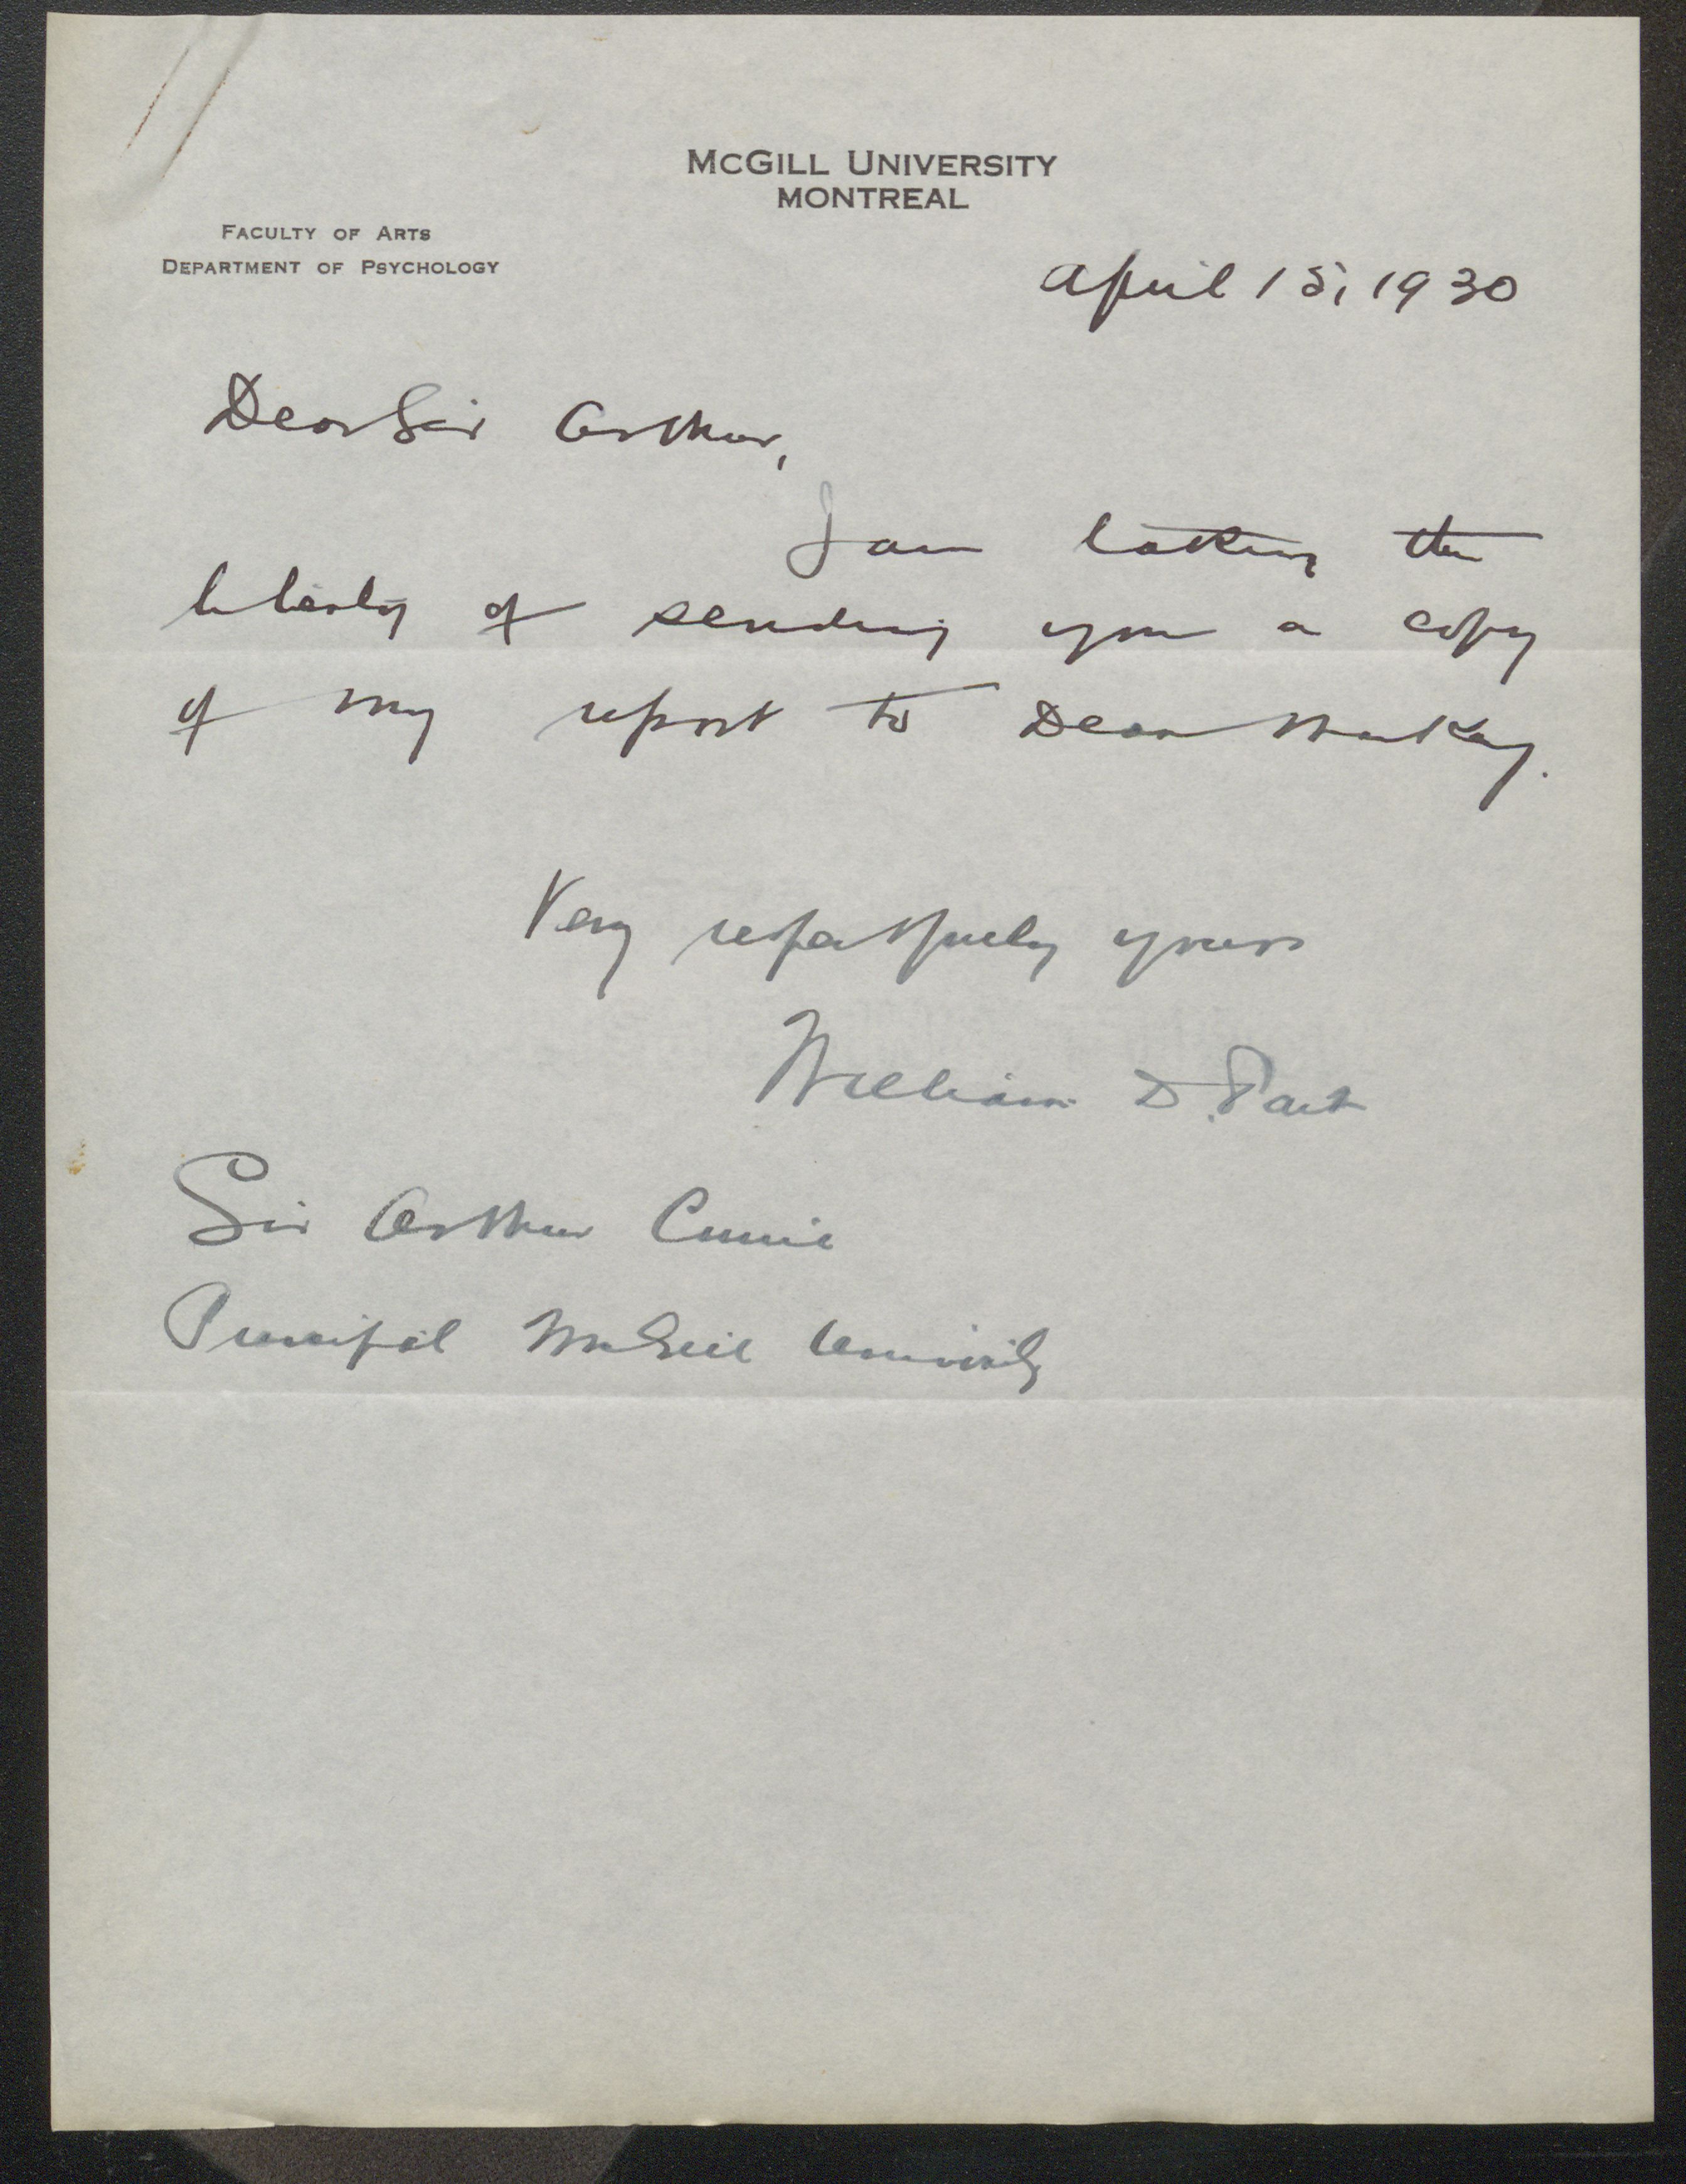 McGill University
MONTREAL
Faculty of Arts
Department of Psychology
April 15, 1930
Dear Sir Arthur,
I am taking the
liberty of sending you a copy
of my report to Dean MacKay.
Very respectfully yours
William D. Tait
Sir Arthur Currie
Principal McGill University